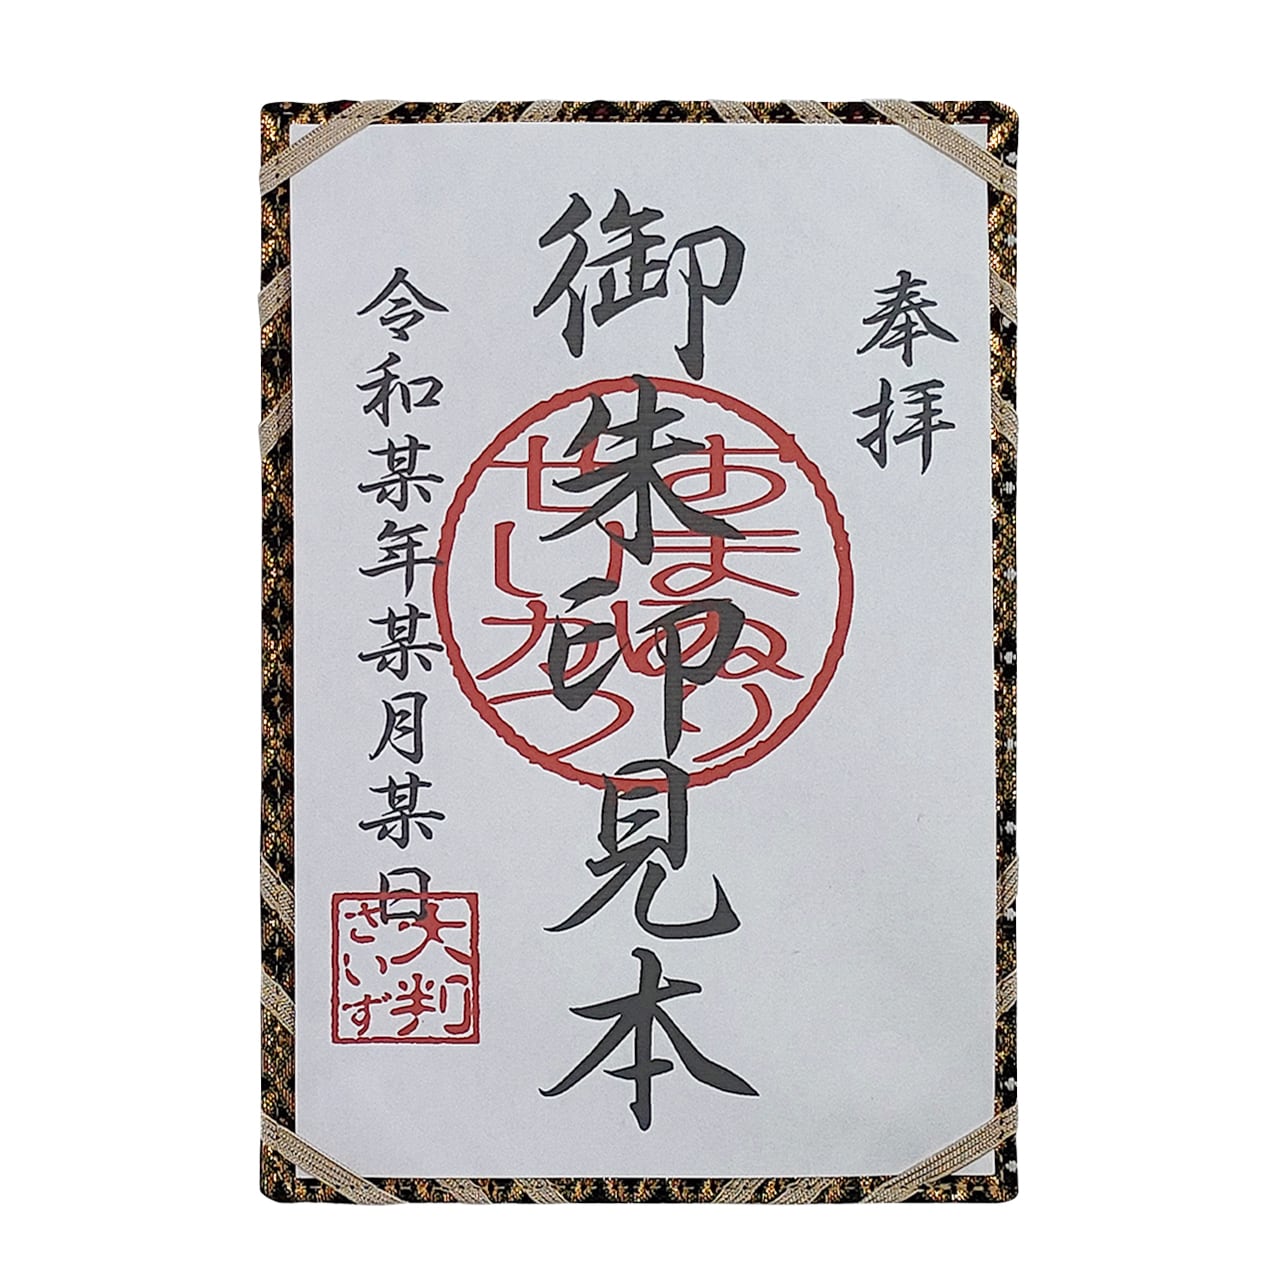 奉拝
御朱印見本
せいかつ
令和某年某月某日
大判
さいず